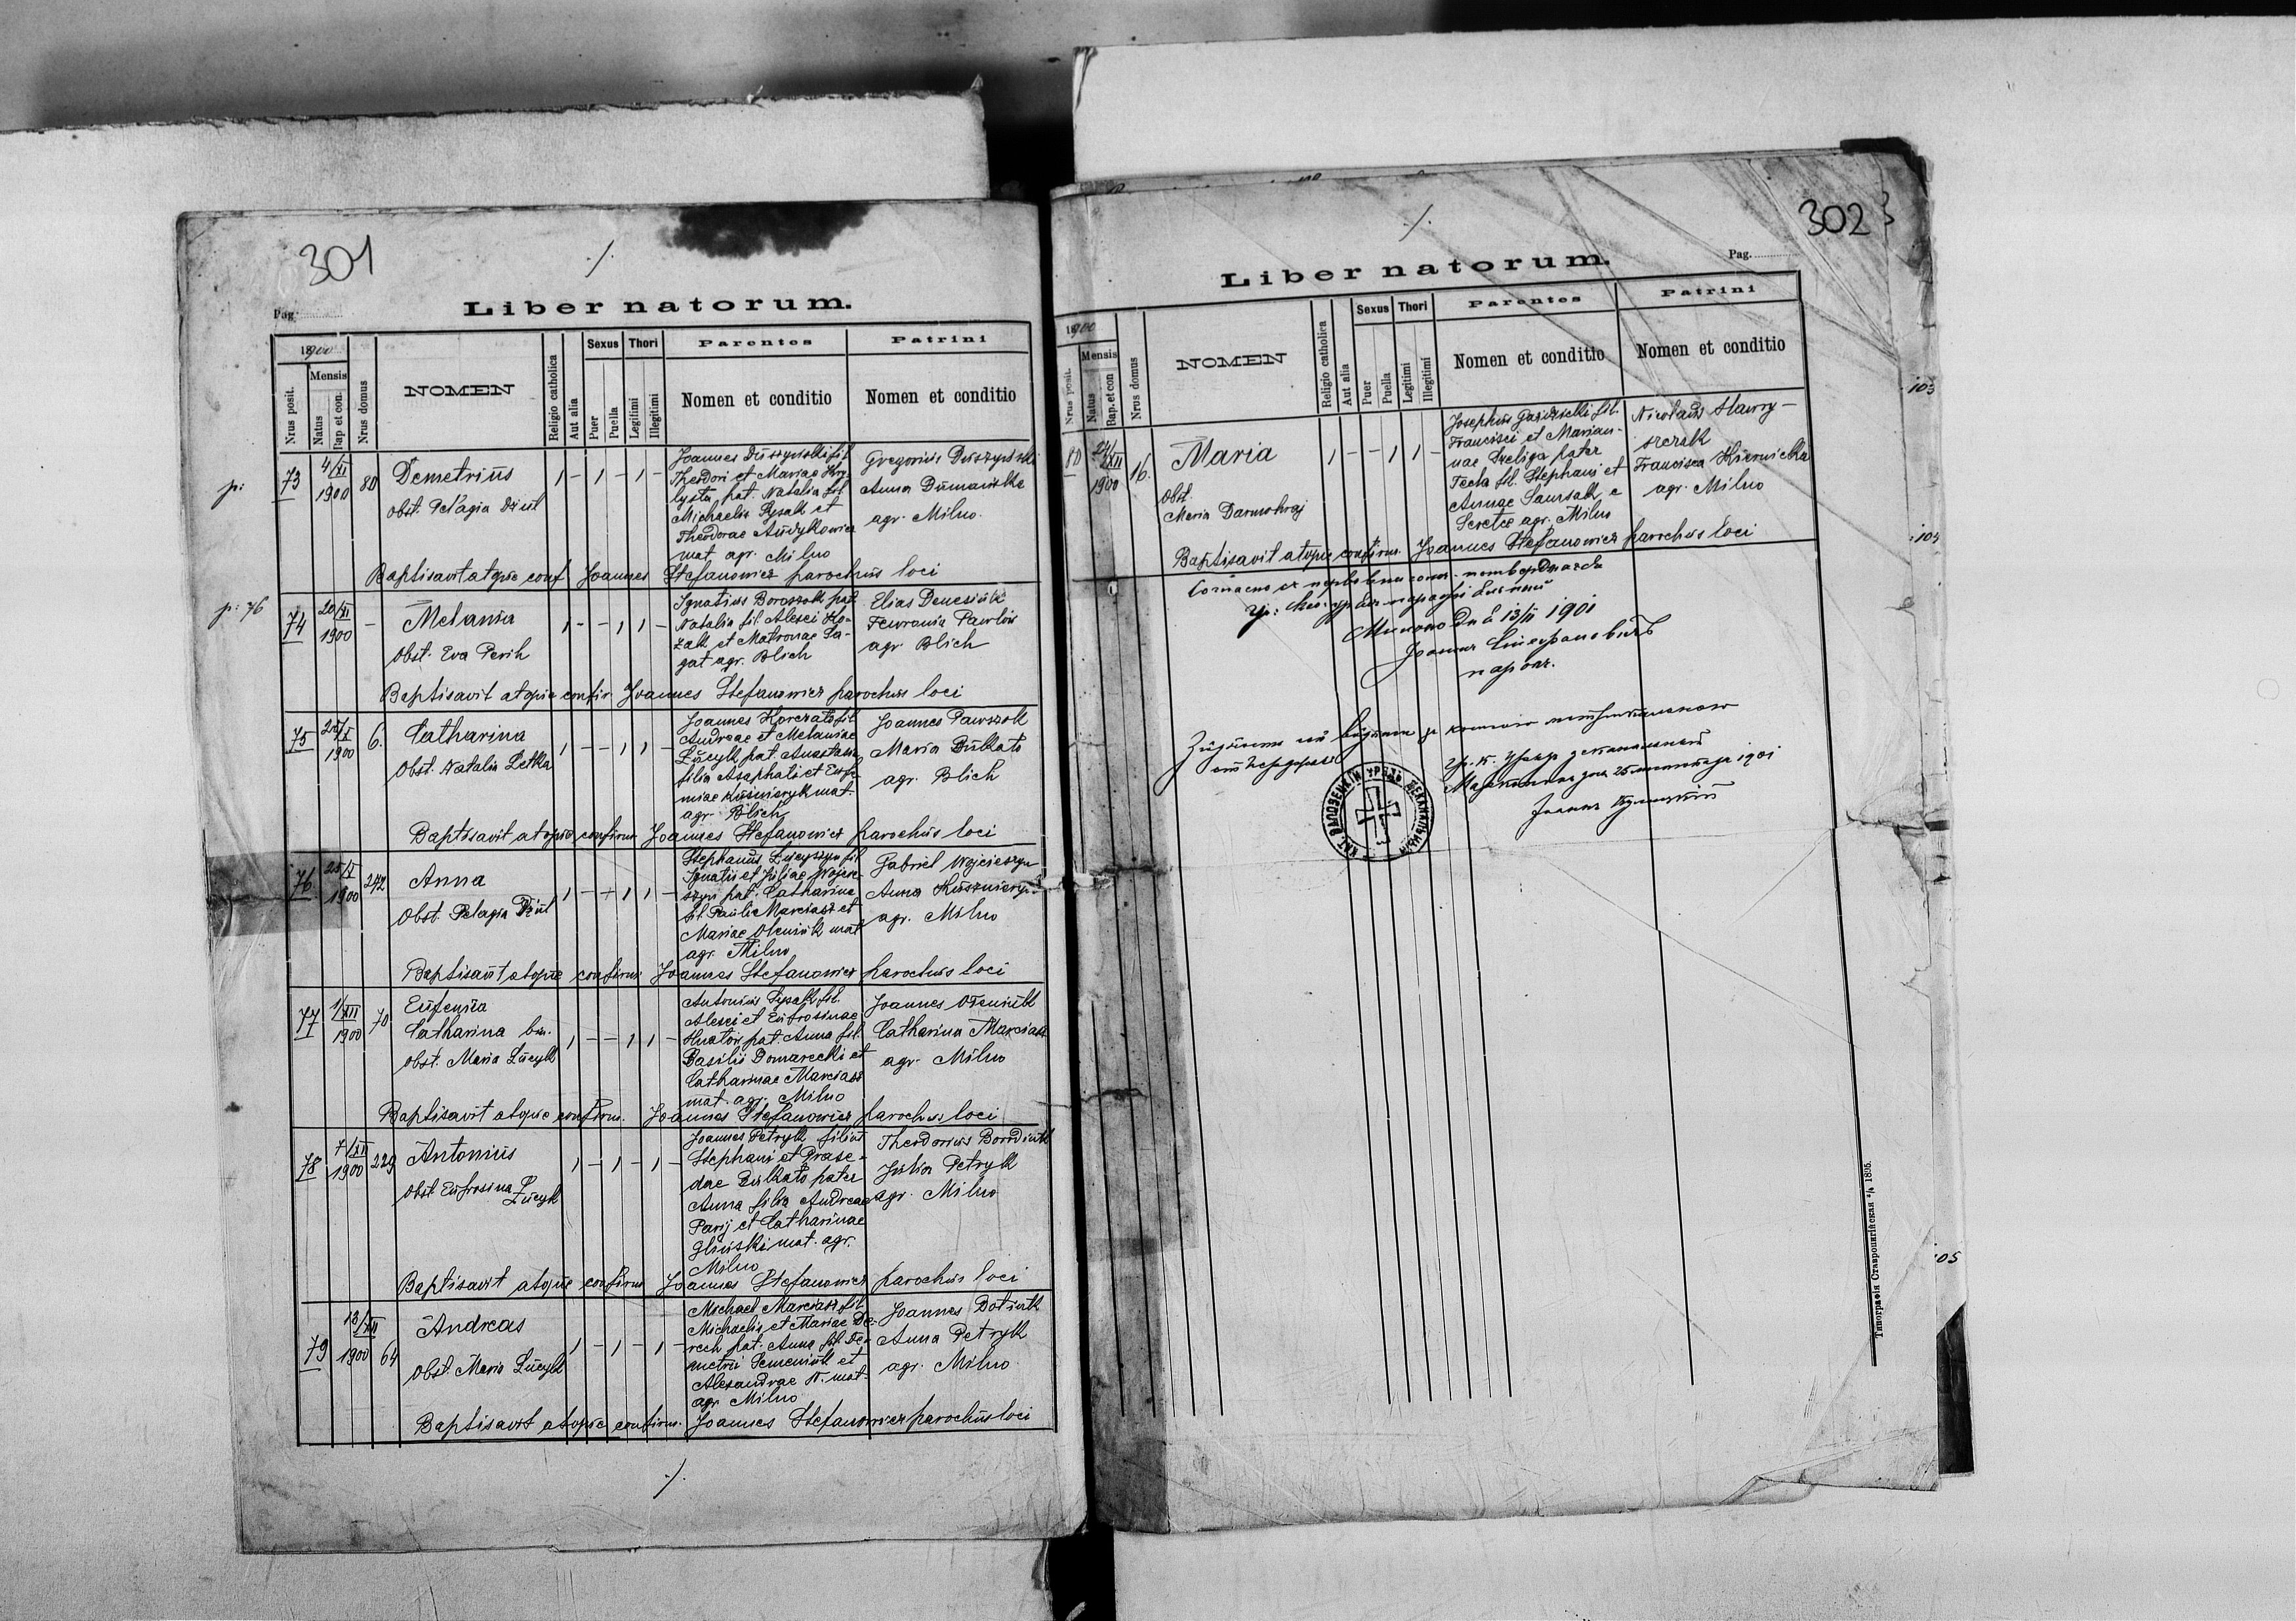 301
./.
Pag.
Liber natorum.
1900
Nrus posit.
Mensis
Natus
Bap. et con.
Nrus domus
NOMEN
Religio catholica
Aut alia
Sexus
Puer
Puella
Thori
Legitimi
Illegitimi
Parentes
Nomen et conditio
Patrini
Nomen et conditio
p:
73
4/XI
1900
80
Demetrius
Obst. Pelagia Dziul
1 - 1 - 1 -
Joannes Duszynski fil
Theodori et Mariae
pat. Natalia fil
Michaelis Łysak et
Theodorae Andykowicz
mat agr. Milno
Gregorius Duszynski
Anna Dumanska
agr. Milno
Baptisavit atque conf Joannes Stefanowicz parochus loci
p: 76
74
20/XI
1900
-
Melania
Obst. Eva Perih
1 - - 1 1 -
Ignatius Boroszok pat
Natalia fil. Alexei Ko-
zak et Matronae Za-
gat agr. Blich
Elias Denesiuk
Fewronia Pawlow
agr. Blich
Baptisavit atque confir. Joannes Stefanowicz parochus loci
75
25/X
1900
6.
Catharina
Obst. Natalia Letka
1 - - 1 1 -
Joannes Korczato fil
Andreae et Melaniae
Łucyk pat. Anastasia
filia Asaphati et Eufe-
miae Kusnieryk mat.
agr. Blich
Joannes Pawszok
Maria Bulkato
agr. Blich
Baptisavit atque confirm Joannes Stefanowicz parochus loci
76
25/X
1900
242
Anna
Obst. Pelagia Dziul
1 - - 1 1 -
Stephanus Łucyszyn fil
Ignatii et Juliae Wojcie-
szyn pat. Catharina
fil. Pauli Marciasz et
Mariae Oleniuk mat
agr. Milno
Gabriel Wojcieszyn
Anna
agr. Milno
Baptisavit atque confirm Joannes Stefanowicz parochus loci
77
1/XII
1900
70
Eufemia
Catharina bin.
Obst. Maria Łucyk
1 - - 1 1 -
Antonius Łysak fil.
Alexei et Eufrosinae
Hnatow pat. Anna fil.
Basilii Domarecki et
Catharinae Marciasz
mat. agr. Milno
Joannes Oleniuk
Catharina Marciasz
agr. Milno
Baptisavit atque confirm. Joannes Stefanowicz parochus loci
78
7/XII
1900
229
Antonius
Obst. Eufrosina P.
Łucyk
1 - 1 - 1 -
Joannes Petryk filius
Stephani et Parase-
dae Bulkato pater
Anna filia Andreae
Parij et Catharinae
Glinski mat. agr.
Milno
Theodorius
Julia Petryk
agr. Milno
Baptisavit atque confirm Joannes Stefanowicz parochus loci
79
18/XII
1900
64
Andreas
Obst. Maria Łucyk
1 - 1 - 1 -
Michael Marciasz fil.
Michaelis et Mariae De-
rech pat. Anna fil. De-
metrii Semeniuk et
Alexandrae N. mat.
agr. Milno
Joannes Dotiuk
Anna Petryk
agr. Milno
Baptisavit atque confirm. Joannes Stefanowicz parochus loci
./.
302
3
./.
Pag.
Liber natorum.
1900
Nrus posit.
Mensis
Natus
Bap. et con
Nrus domus
NOMEN
Religio catholica
Aut alia
Sexus
Puer
Puella
Thori
Legitimi
Illegitimi
Parentes
Nomen et conditio
Patrini
Nomen et conditio
80
24/XII
1900
16.
Maria
Obst.
Maria Darmohraj
1 - - 1 1 -
Josephus
Francisci et Marian-
nae Szeliga pater
Tecla fil. Stephani et
Annae
agr. Milno
Nicolaus Hawry-
szczak
Francisca Kiernicka
agr. Milno
Baptisavit atque confirm. Joannes Stefanowicz parochus loci
13/II 1901
Іоаннъ Стефановичъ
парохъ.
1901
КАТ. ЗАЛОЗЕЦКІЙ УРЯДЪ ДЕКАНАЛЬНЫЙ
103
105
Типографія Ставропигійская 1895.